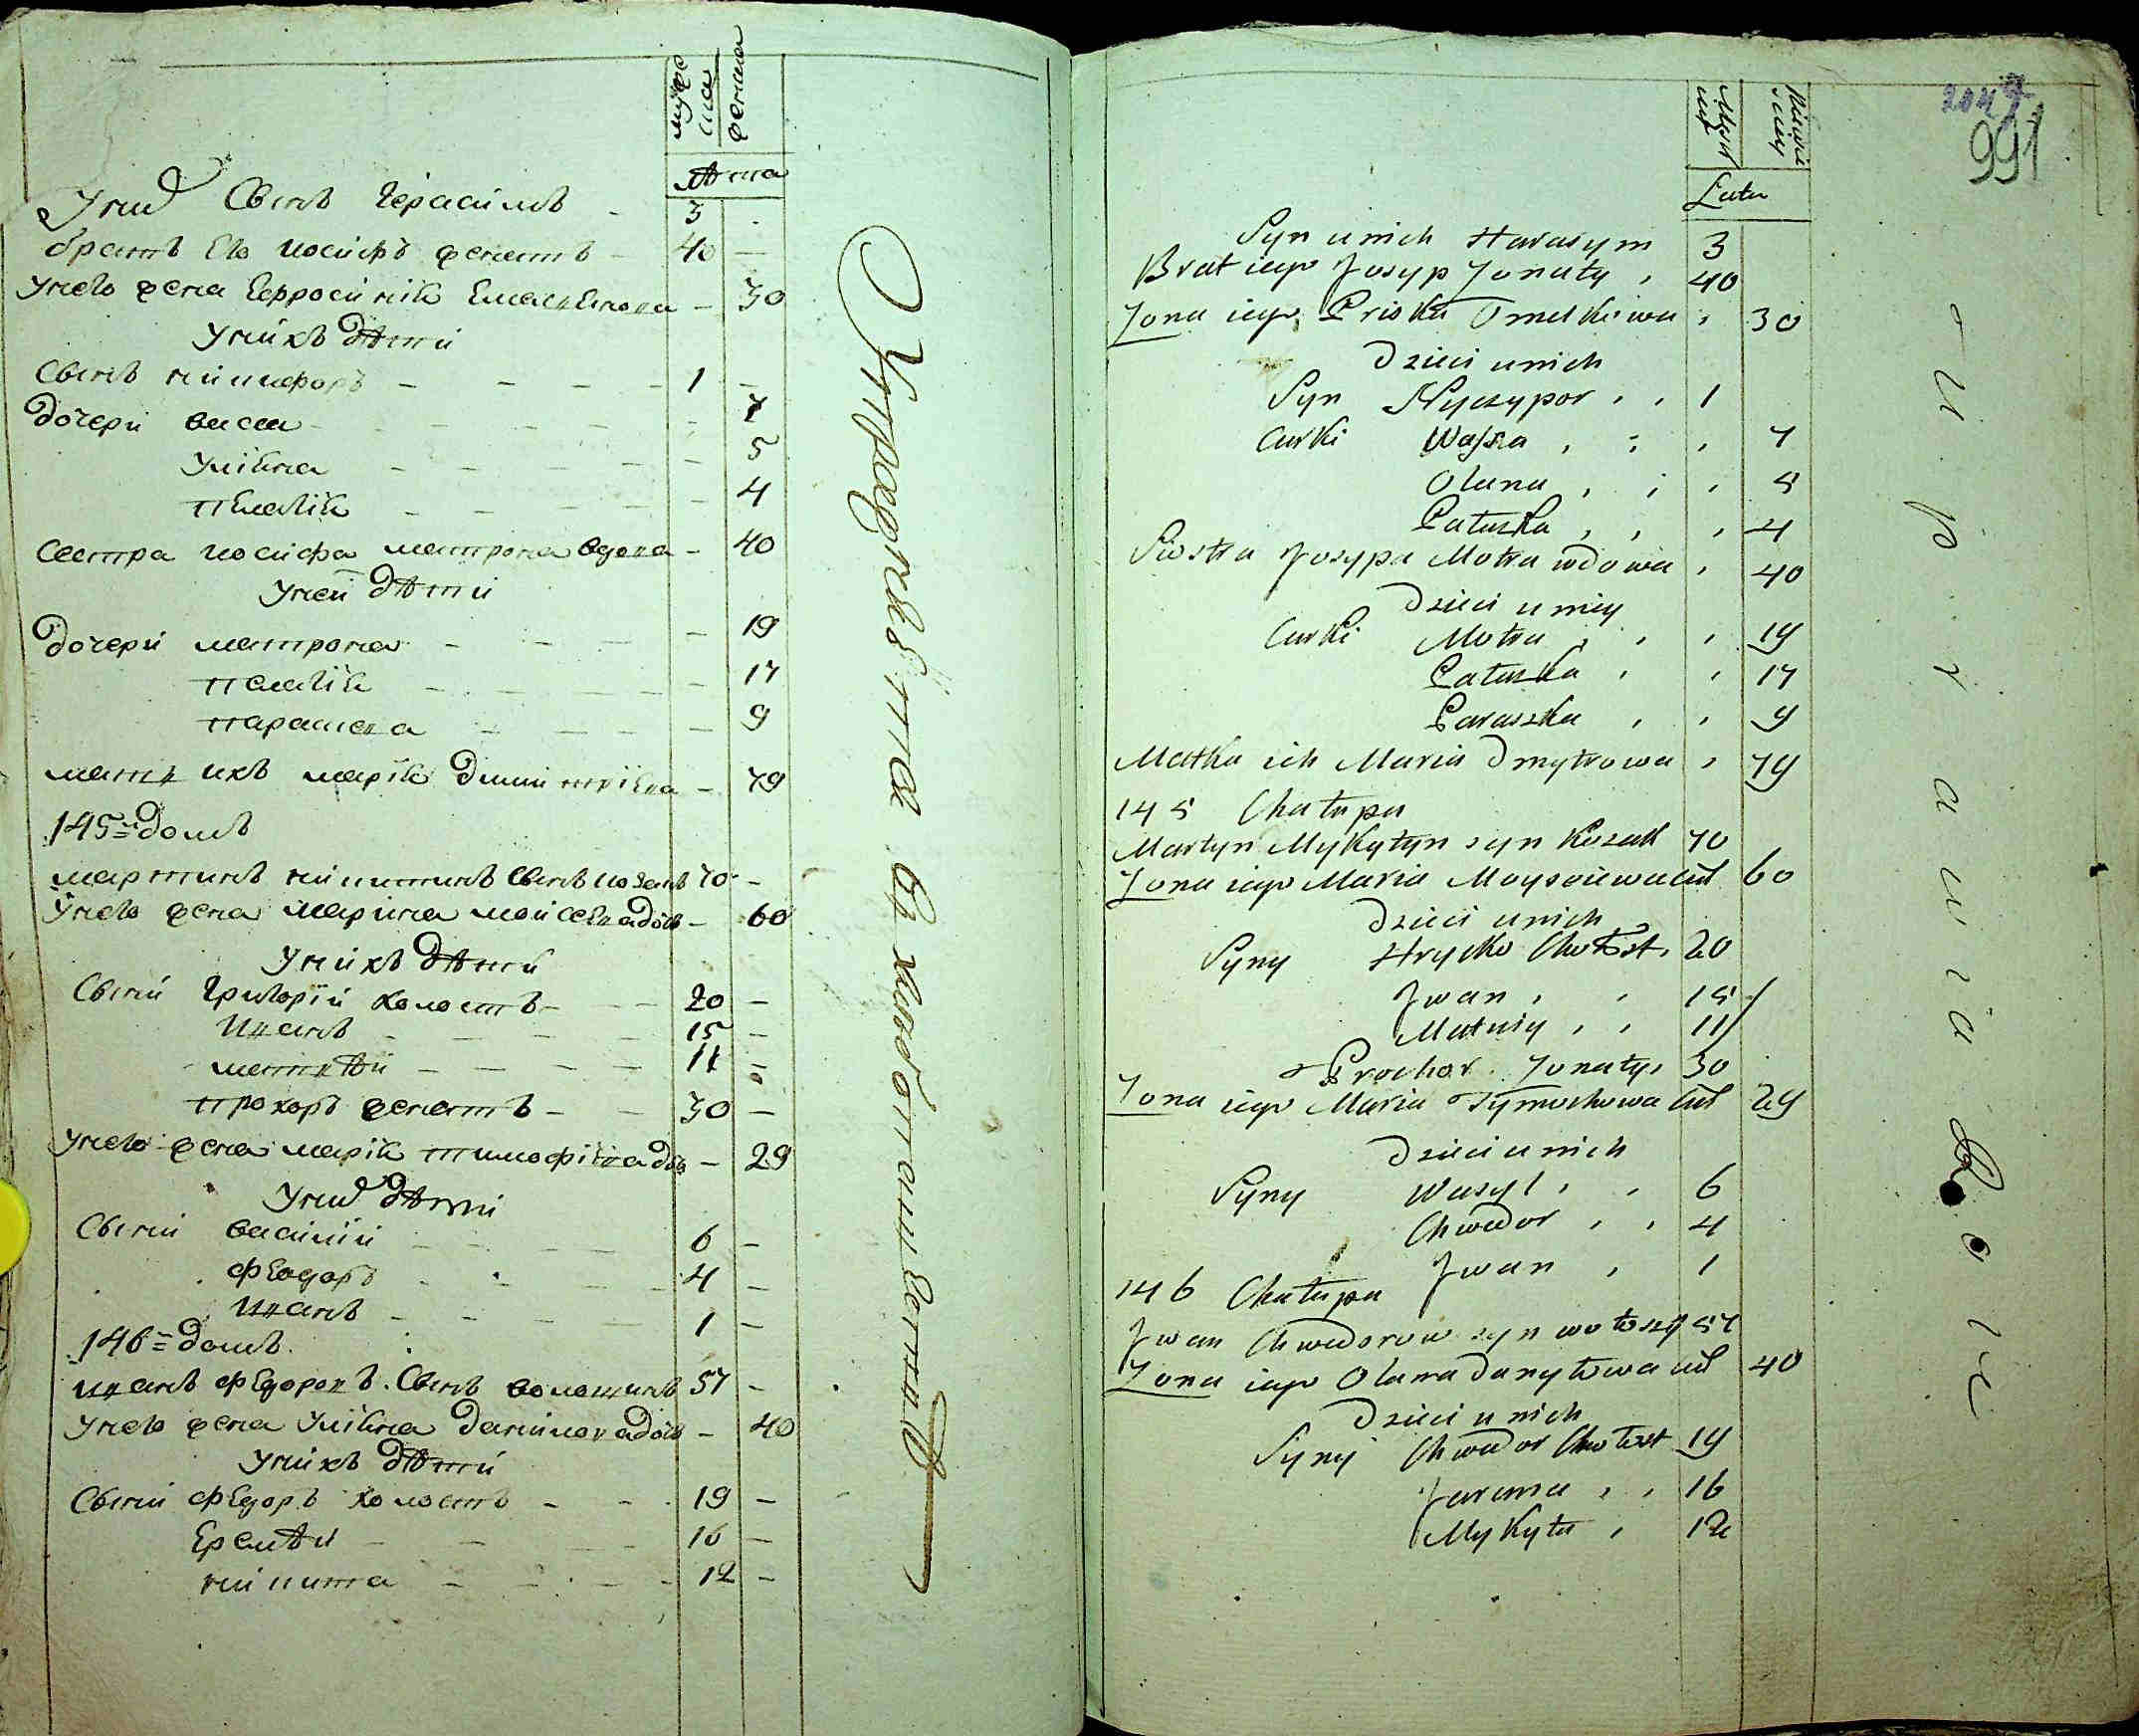 мужеска
женска
Лѣта
Унихъ Сынъ Герасимъ - 3 -
братъ Его иосифъ женатъ - 40 -
унего жена Евфросинія Емелянова - 30
Унихъ дѣти
Сынъ никифоръ - - - - 1 -
дочери васса - - - - - 7
Уліяна - - - - - 5
пелагія - - - - - 4
Сестра иосифа матрона вдова - 40
Унеи дѣти
дочери матрона - - - - 19
пелагія - - - - - 17
параскева - - - - 9
мать ихъ марія димитріева - 79
145й домъ
мартинъ никитинъ Сынъ козакъ 70 -
Унего жена Марина моисеева дочь - 60
Унихъ дѣти
Сыни Григорій холостъ - - 20 -
Иванъ - - - - 15 -
матѣй - - - - 11 -
прохоръ женатъ - - 30 -
унего жена марія тимофіева дочь - 29
Унихъ дѣти
Сыни василій - - - - 6 -
феодоръ - - - - 4 -
Иванъ - - - - 1 -
146й домъ
иванъ федоровъ Сынъ волошинъ 57 -
унего жена Уліяна данилова дочь - 40
унихъ дѣти
Сыни федоръ холостъ - - 19 -
Еремѣй - - - - 16 -
никита - - - - 12 -
204
991
Lata
Syn u nich Harasym 3
Brat iego Josyp Zonaty , 40
Zona iego Priska Omelkowa , 30
Dzieci u nich
Syn Nyczypor , , 1
Curki Wassa , , , 7
Olana , , , 5
Pałaszka , , , 4
Siostra Josypa Motra wdowa , 40
Dzieci u niey
Curki Motra , , , 19
Pałaszka , , 17
Paraszka , , 9
Matka ich Maria Dmytrowa , 79
145 Chałupa
Martyn Mykytyn syn Kozak 70
Zona iego Maria Moysiiowa cur 60
Dzieci u nich
Syny Hrycko Chołost, 20
Jwan , , 15
Matwiy , , 11
Prochor Zonaty, 30
Zona iego Maria Tymochowa cur 29
Dzieci u nich
Syny Wasyl , , 6
Chwedor , , 4
Jwan , 1
146 Chałupa
Jwan Chwedorow syn wołoszyn 57
Zona iego Olana Danyłowa cur 40
Dzieci u nich
Syny Chwedor Chołost 19
Jarema , , 16
Mykyta , 12